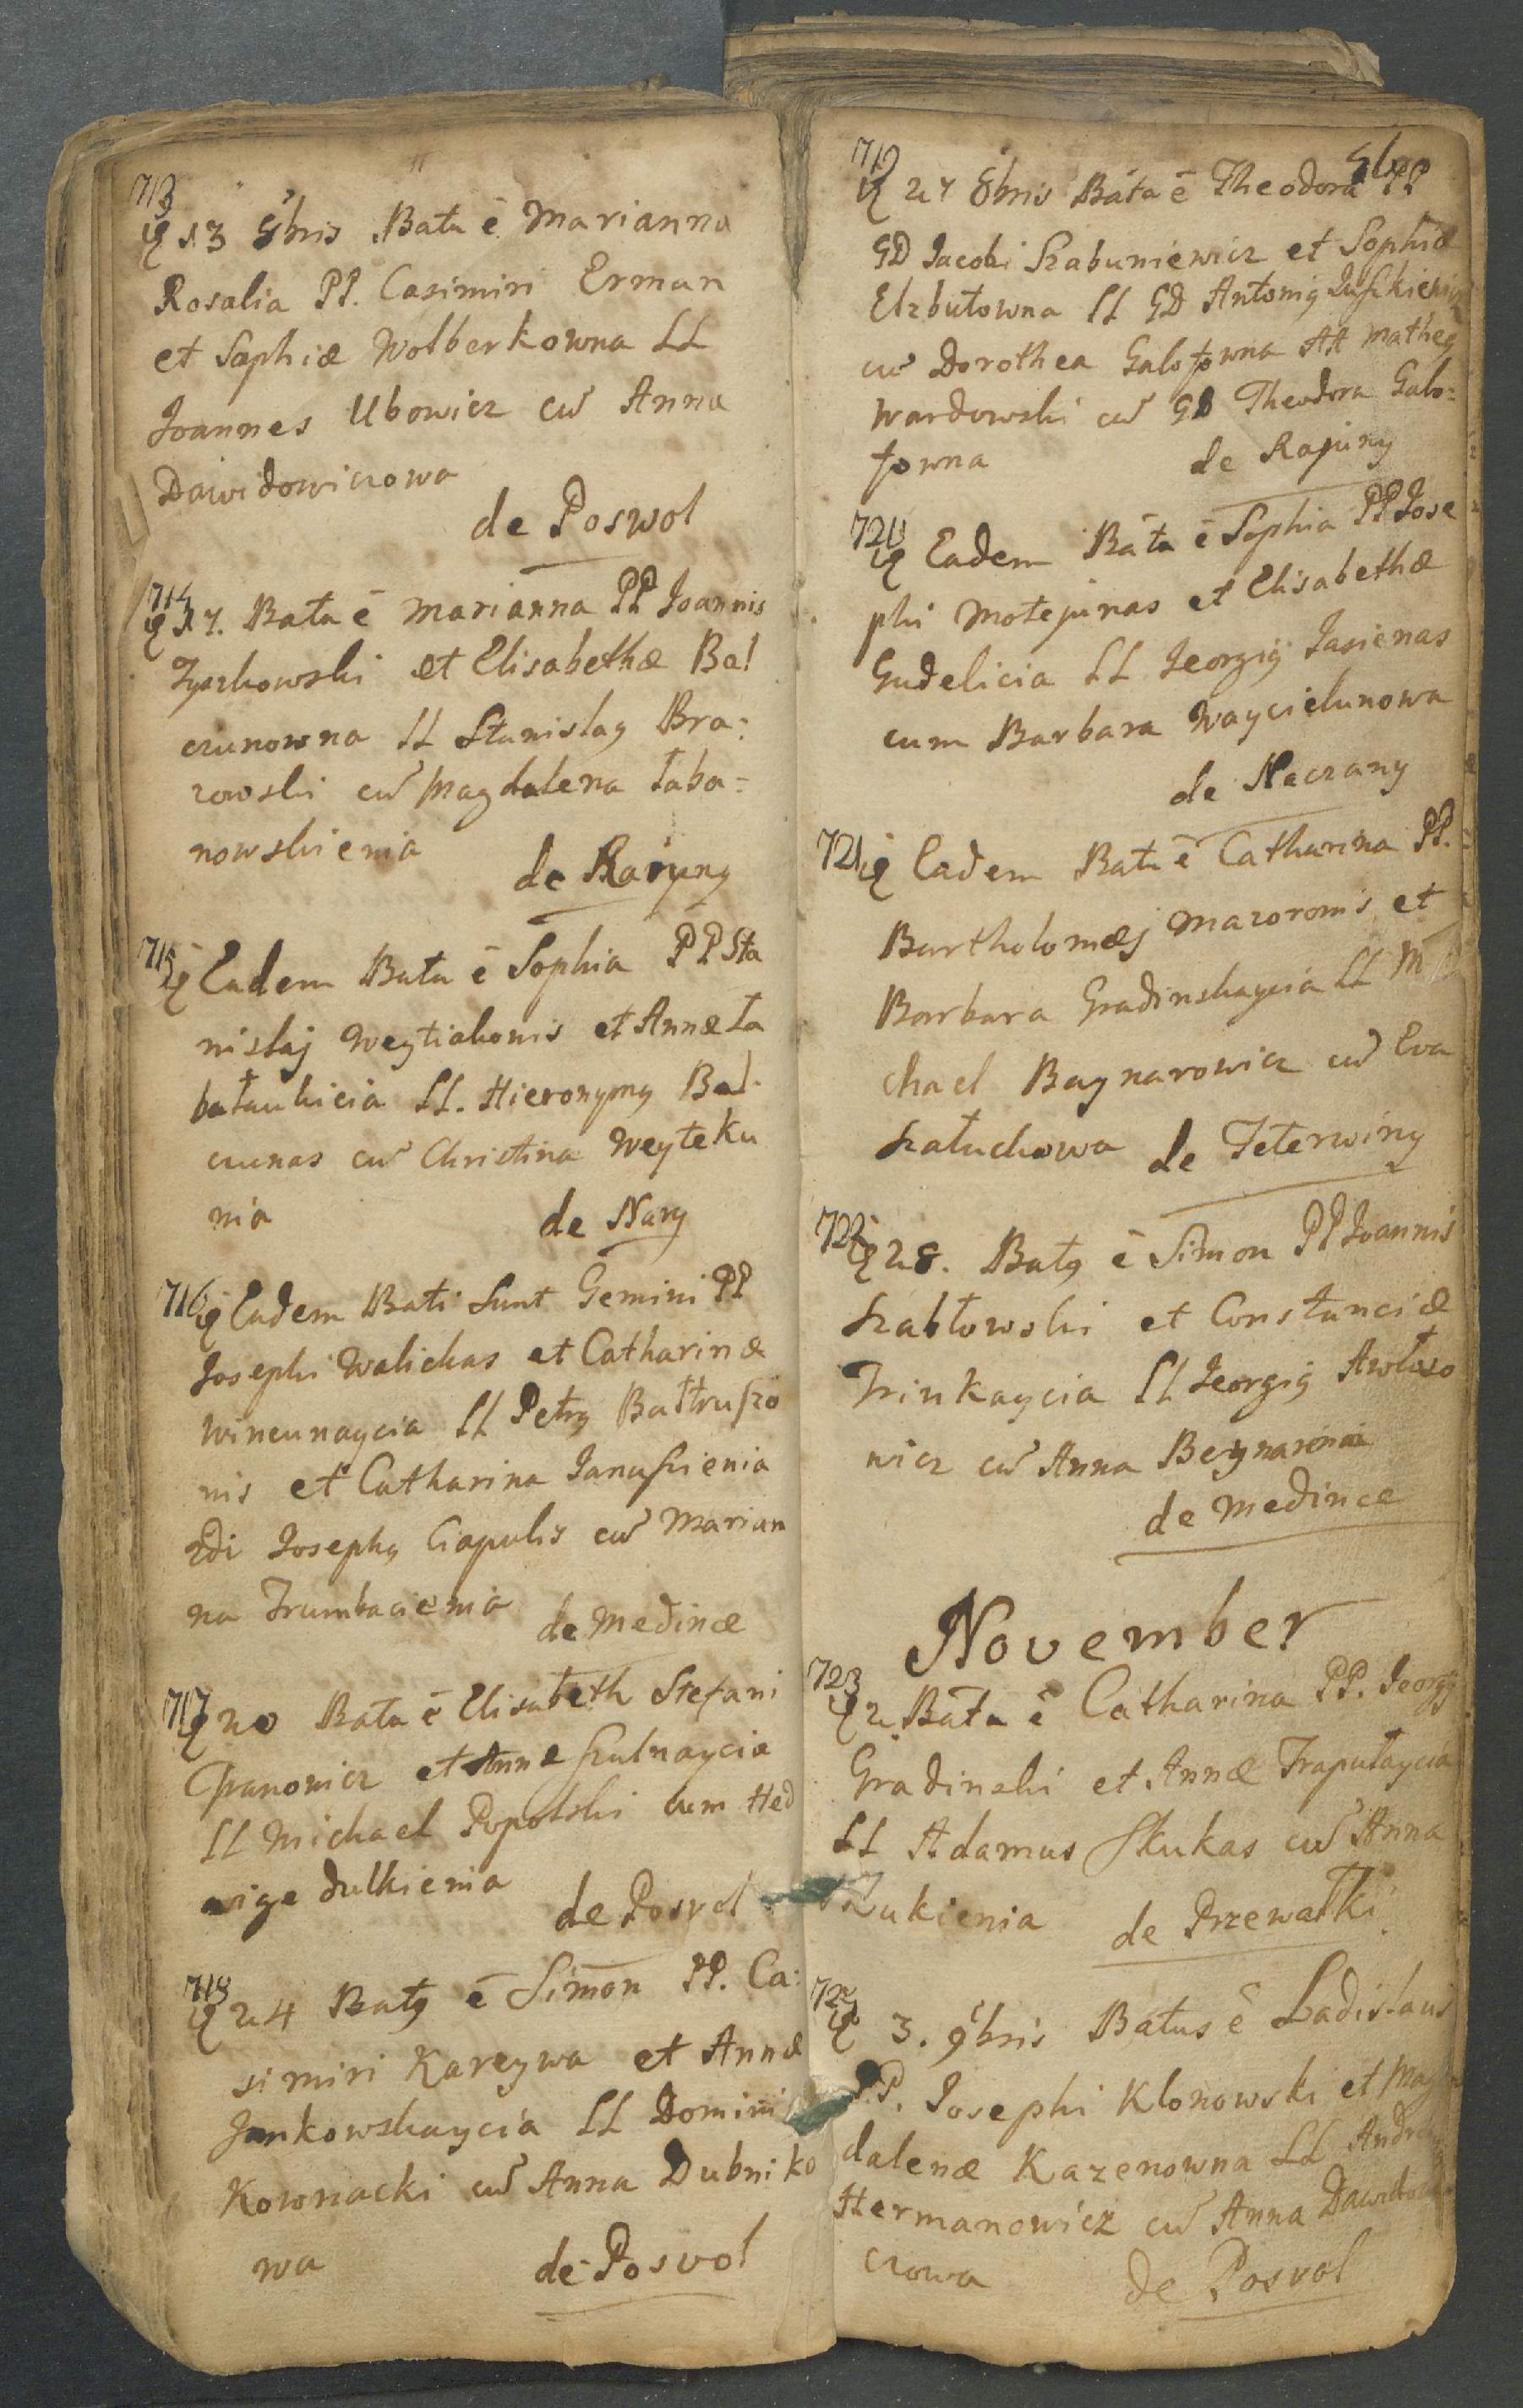 713
13 8bris Bata ē Marianna
Rosalia PP. Casimiri Erman
et Sophiæ Wolberkowna LL
Joannes Ubowicz cū Anna
Dawidowiczowa
de Poswol
714
17. Bata ē Marianna PP Joannis
Tyszkowski et Elisabethæ Bal
czunowna LL Stanislaq Bra:
zowski cū Magdalena Laba=
nowskienia
de Raiuny
715
Eadem Bata ē Sophia PP Sta
nislaj Weytiakonis et Annæ La
bataukicia LL. Hieronymq Bal
czunas cū Christina Weyteku
nia
de Nary
716 Eadem Bati Sunt Gemini PP
Josephi Walickas et Catharinæ
Wincunaycia LL Petrq Baltruszo
nis et Catharina Januszienia
2di Josephq Ciapulis cū Marian
na Trumbacienia
de Medinæ
717 20 Bata ē Elisabeth Stefani
Czanowicz et Annæ Szulnaycia
LL Michael Popolski cum Hed
wige Dulkienia
de Posvol
718
24 Batq ē Simon PP. Ca:
simiri Kareywa et Annæ
Jankowskaycia LL Domini
Kownacki cū Anna Dubniko
wa
de Posvol
719
27 8bris Bata ē Theodora PP
GD Jacobi Szabuniewicz et Sophiæ
Elzbutowna LL GD Antoniq Juszkiewicz
cū Dorothea Galofowna AA Matheq
Wardowski cū GD Theodora Galo=
fowna
de Rajuny
720
Eadem Bata ē Sophia PP Jose
phi Motejunas et Elisabethæ
Gudelicia LL Georgiq Jasienas
cum Barbara Waycielunowa
de Naczany
721 Eadem Bata ē Catharina PP.
Bartholomæj Mazoronis et
Barbara Gradinskaycia LL Mi
chael Baynarowicz cū Eva
Szatuchowa
de Teterwiny
722
28. Batq ē Simon PP Joannis
Szablowski et Constanciæ
Trinkaycia LL Georgiq Awłaso
wicz cū Anna
de Medincæ
November
723
2 Bata ē Catharina PP. Georgij
Gradinski et Annæ Traputaycia
LL Adamus Skukas cū Anna
Żukienia
de Przewałki
3. 9bris Batus ē Ladislaus
PP. Josephi Klonowski et Mag
dalenæ Kazenowna LL Andreas
Hermanowicz cū Anna Dawidowi
czowa
de Posvol